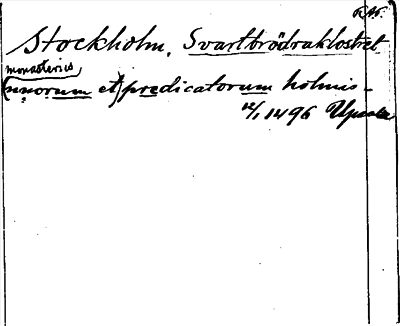 Stockholm, Svartbrödraklostret
monasterium
(minorum et) predicatorum holmis-
12/1 1496 Upsala